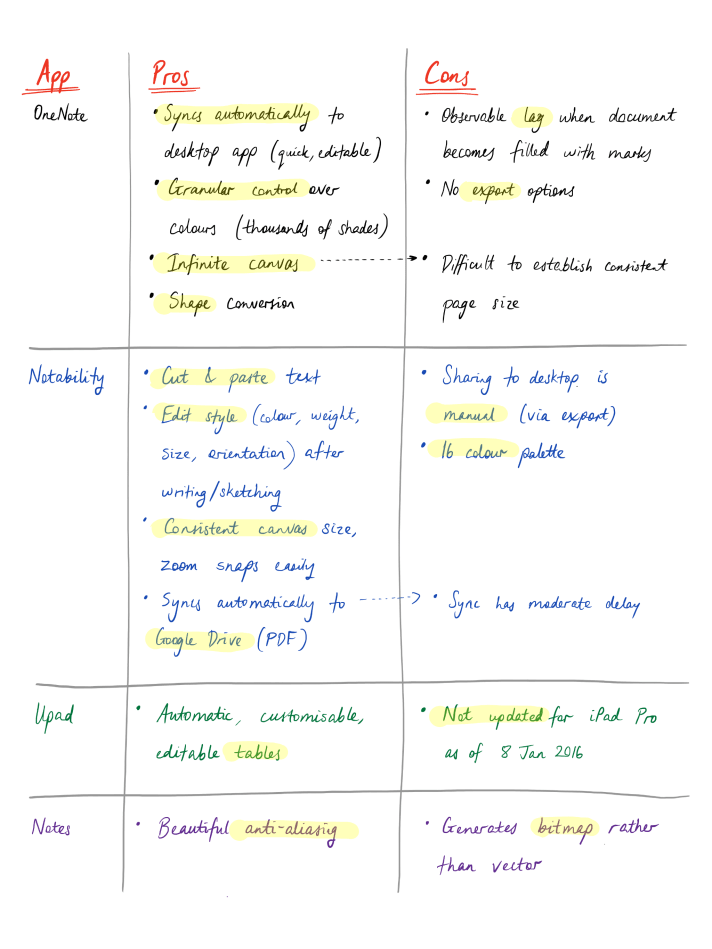 App Pros Cons
OneNote
• Syncs automatically to
desktop app (quick, editable)
• Granular control over
colours (thousands of shades)
• Infinite canvas
• Shape conversion
• Observable lag when document
becomes filled with marks
• No export options
• Difficult to establish consistent
page size
Notability
• Cut & paste text
• Edit style (colour, weight,
size, orientation) after
writing/sketching
• Consistent canvas size,
zoom snaps easily
• Syncs automatically to
Google Drive (PDF)
• Sharing to desktop is
manual (via export)
• 16 colour palette
• Sync has moderate delay
Upad
• Automatic, customisable,
editable tables
• Not updated for iPad Pro
as of 8 Jan 2016
Notes
• Beautiful anti-aliasig
• Generates bitmap rather
than vector